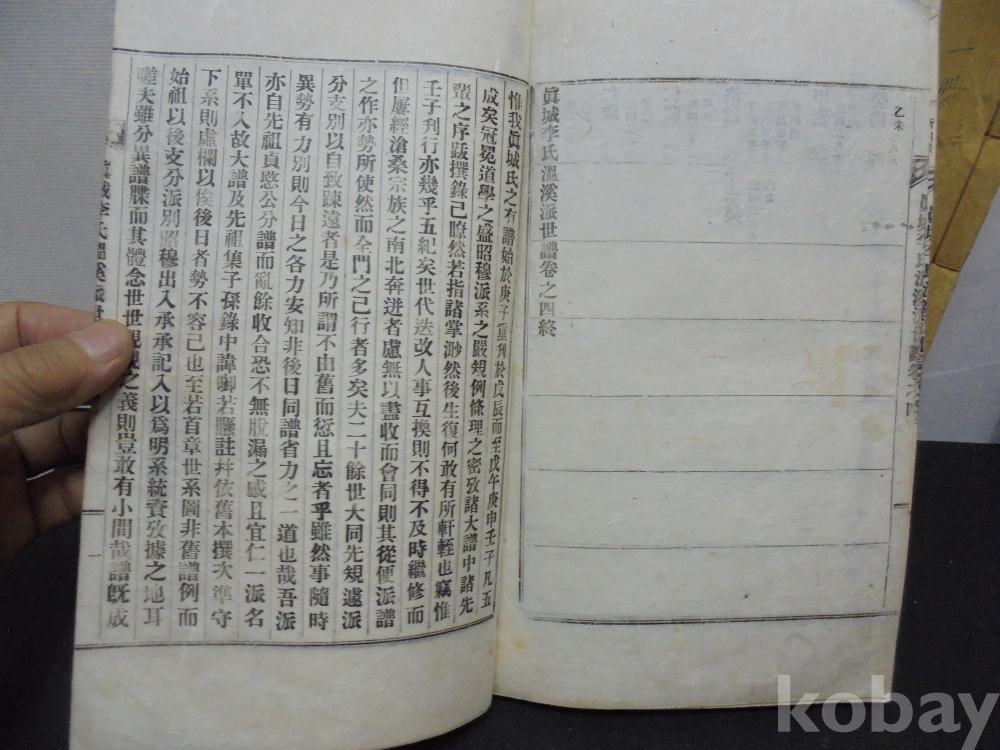 乙未
眞城李氏溫溪派世譜卷之四終
惟我眞城氏之有譜始於庚子重刊於戊辰而至戊午庚申壬子凡五
成矣冠冕道學之盛昭穆派系之嚴規例條理之密攷諸大譜中諸先
輩之序跋撰錄已瞭然若指諸掌渺然後生復何敢有所軒輊也竊惟
壬子刊行亦幾乎五紀矣世代迭改人事互換則不得不及時繼修而
但屢經滄桑宗族之南北奔迸者慮無以盡收而會同則其從便派譜
之作亦勢所使然而全門之已行者多矣夫二十餘世大同先規遽派
分支別以自致踈遠者是乃所謂不由舊而愆且忘者乎雖然事隨時
異勢有力別則今日之各力安知非後日同譜省力之一道也哉吾派
亦自先祖貞愍公分譜而亂餘收合恐不無脫漏之感且宜仁一派名
單不入故大譜及先祖集子孫錄中諱啣若懸註幷依舊本撰次準守
下系則虛欄以俟後日者勢不容已也至若首章世系圖非舊譜例而
始祖以後支分派別昭穆出入承承記入以爲明系統資攷據之地耳
嗟夫雖分異譜牒而其體念世世親親之義則豈敢有小間哉譜旣成
眞城李氏溫溪派世
一
kobay